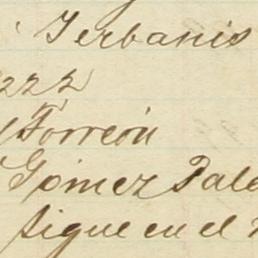 Yerbanis
222
Torreón
Gómez Pala
Sigue en el